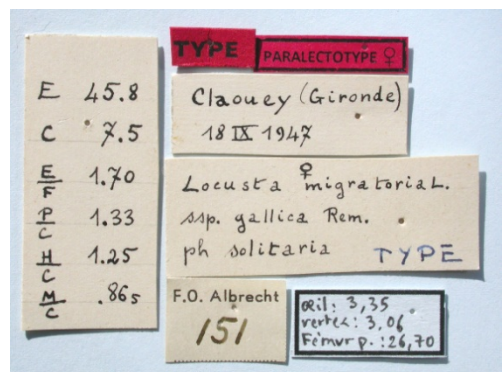 E 45.8
C 7.5
E/F 1.70
P/C 1.33
H/C 1.25
M/C .865
TYPE
PARALECTOTYPE ♀
Claouey (Gironde)
18 IX 1947
Locusta ♀ migratoria L.
ssp. gallica Rem.
ph solitaria TYPE
F.O. Albrecht
151
œil: 3,35
vertex: 3,06
Fémur p.: 26,70